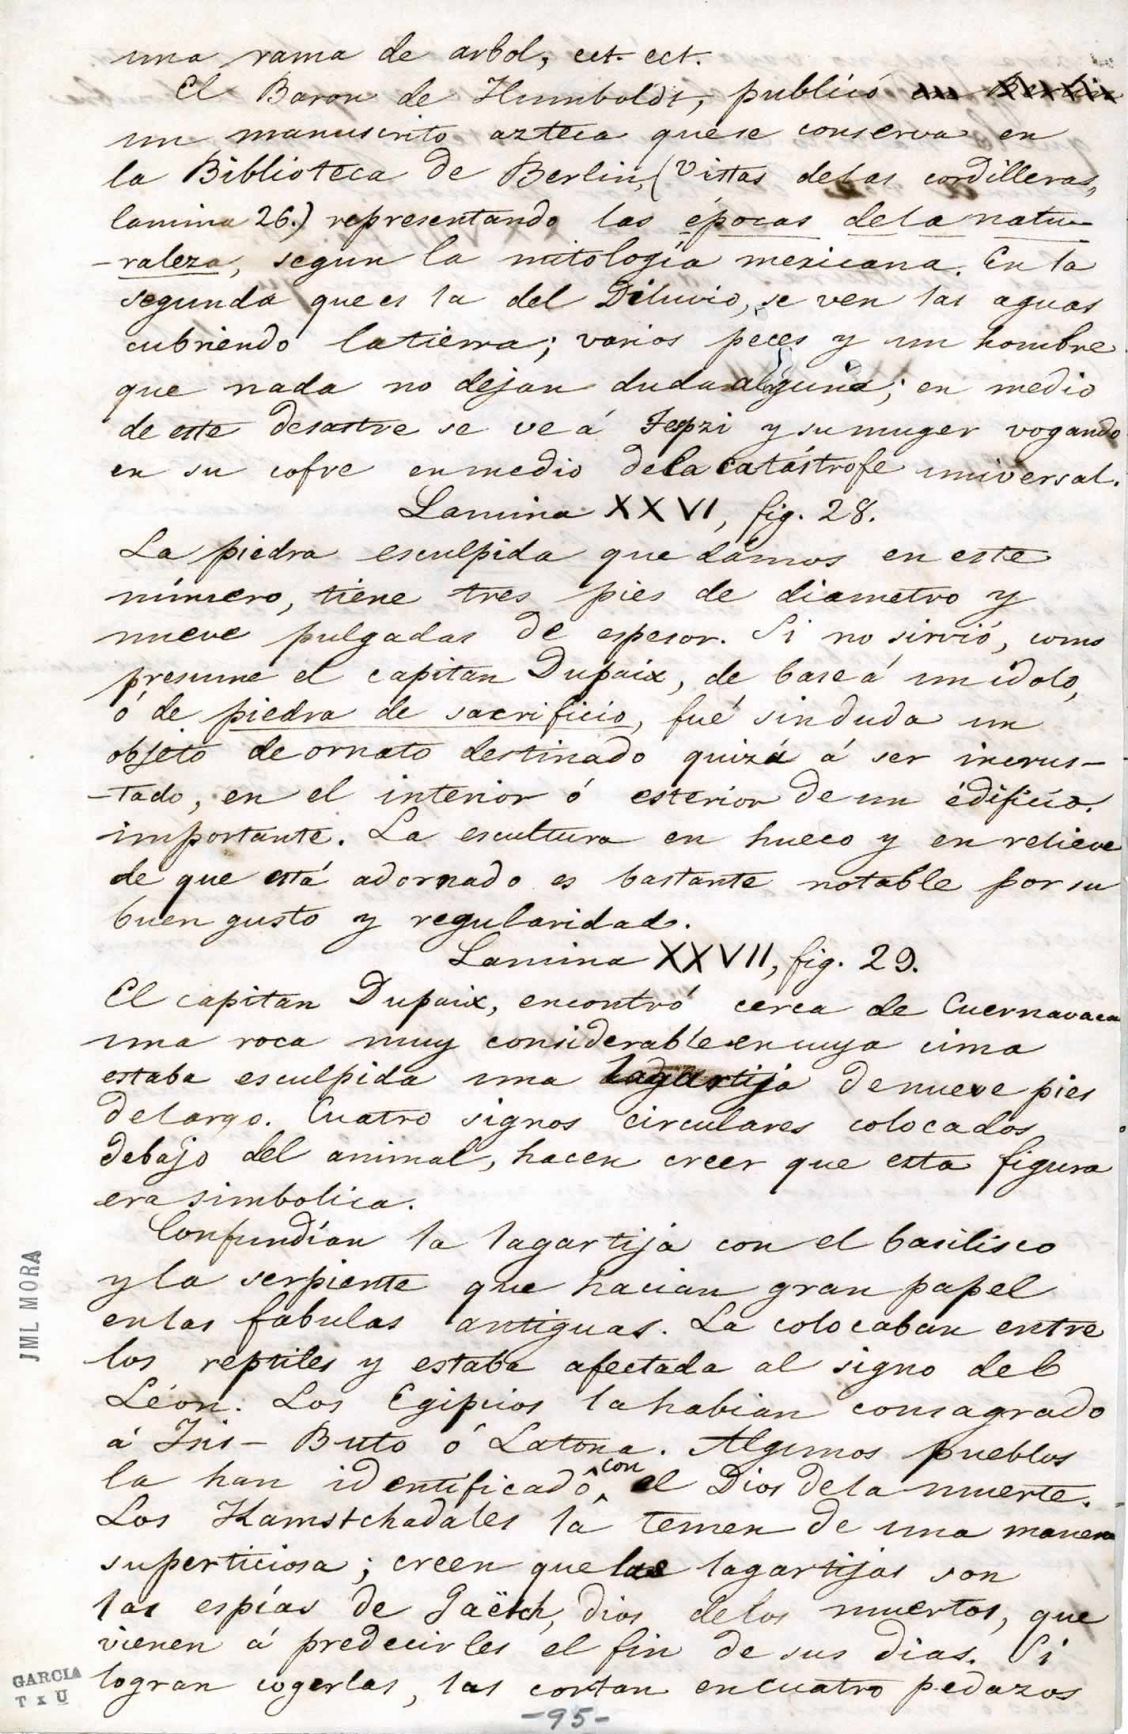 una rama de arbol, ect. ect.
El Baron de Humboldt, publicó
un manuscrito azteca que se conserva en
la Biblioteca de Berlin, (Vistas de las cordilleras,
lamina 26.) representando las épocas de la natu-
-raleza, segun la mitología mexicana. En la
segunda que es la del Diluvio, se ven las aguas
cubriendo la tierra; varios peces y un hombre
que nada no dejan duda alguna; en medio
de este desastre se ve á Tepzi y su muger vogando
en su cofre en medio de la catástrofe universal.
Lamina XXVI, fig. 28.
La piedra esculpida que dámos en este
número, tiene tres pies de diametro y
nueve pulgadas de espesor. Si no sirvió, como
presume el capitan Dupaix, de base á un idolo,
ó de piedra de sacrificio, fué sin duda un
objeto de ornato destinado quizá á ser incrus-
-tado, en el interior ó esterior de un édificio.
importante. La escultura en hueco y en relieve
de que está adornado es bastante notable por su
buen gusto y regularidad.
Lamina XXVII, fig. 29.
El capitan Dupaix, encontró cerca de Cuernavaca
una roca muy considerable en cuya cima
estaba esculpida una lagartija de nueve pies
de largo. Cuatro signos circulares colocados
debajo del animal, hacen creer que esta figura
era simbolica.
Confundían la lagartija con el basilisco
y la serpiente que hacian gran papel
en las fabulas antiguas. La colocaban entre
los reptiles y estaba afectada al signo del
Léon. Los Egipcios la habian consagrado
á Isis-Buto ó Latona. Algunos pueblos
la han identificado con el Dios de la muerte.
Los Kamstchadales la temen de una manera
superticiosa; creen que las lagartijas son
las espías de Gaëtch, dios de los muertos, que
vienen á predecirles el fin de sus dias. Si
logran cogerlas, las cortan en cuatro pedazos
-95-
JML MORA
GARCIA
T x U